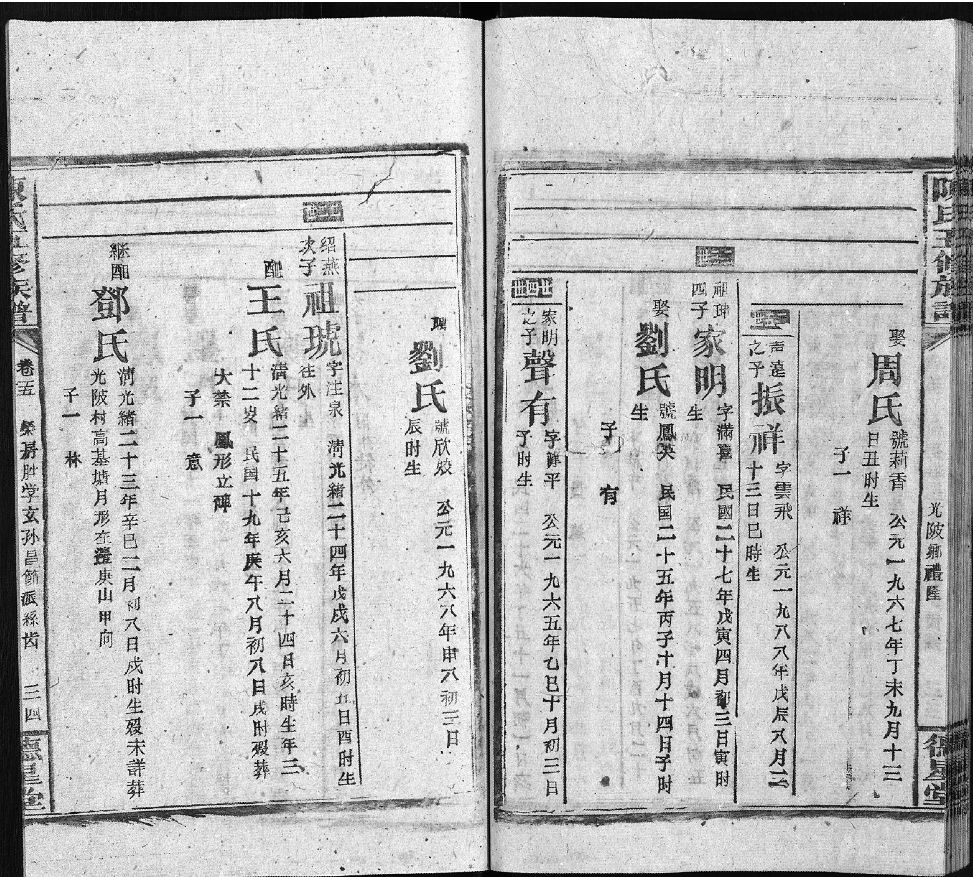 陳氏五修族譜
光陂鄉禮隆
德星堂
娶 周氏 號莉香 公元一九六七年丁未九月十三
日丑时生
子一 祥
声遠
之子 振祥 字雲飛 公元一九八八年戊辰八月二
十三日巳時生
祖琕
四子 家明 字滿臺 民國二十七年戊寅四月初三日寅时
生
娶 劉氏 號鳳英 民国二十五年丙子十月十四日子时
生
子一 有
廿四世
家明
之子 聲有 字静平 公元一九六五年乙巳十月初三日
子时生
娶 劉氏 號欣姣 公元一九六八年申八初三日
辰时生
绍燕
次子 祖琥 字注泉 清光緒二十四年戊戌六月初五日酉时生
往外
配 王氏 清光緒二十五年己亥六月二十四日亥時生年三
十二岁 民國十九年庚午八月初八日戌时殁葬
大禁 鳳形立碑
子一 意
継配 鄧氏 清光緒二十三年辛巳二月初八日戌时生殁未詳葬
光陂村高基塘月形在壟東山甲向
子一 林
陳氏五修族譜
卷五 榮房胜学玄孙昌節派系齿 三四
德星堂